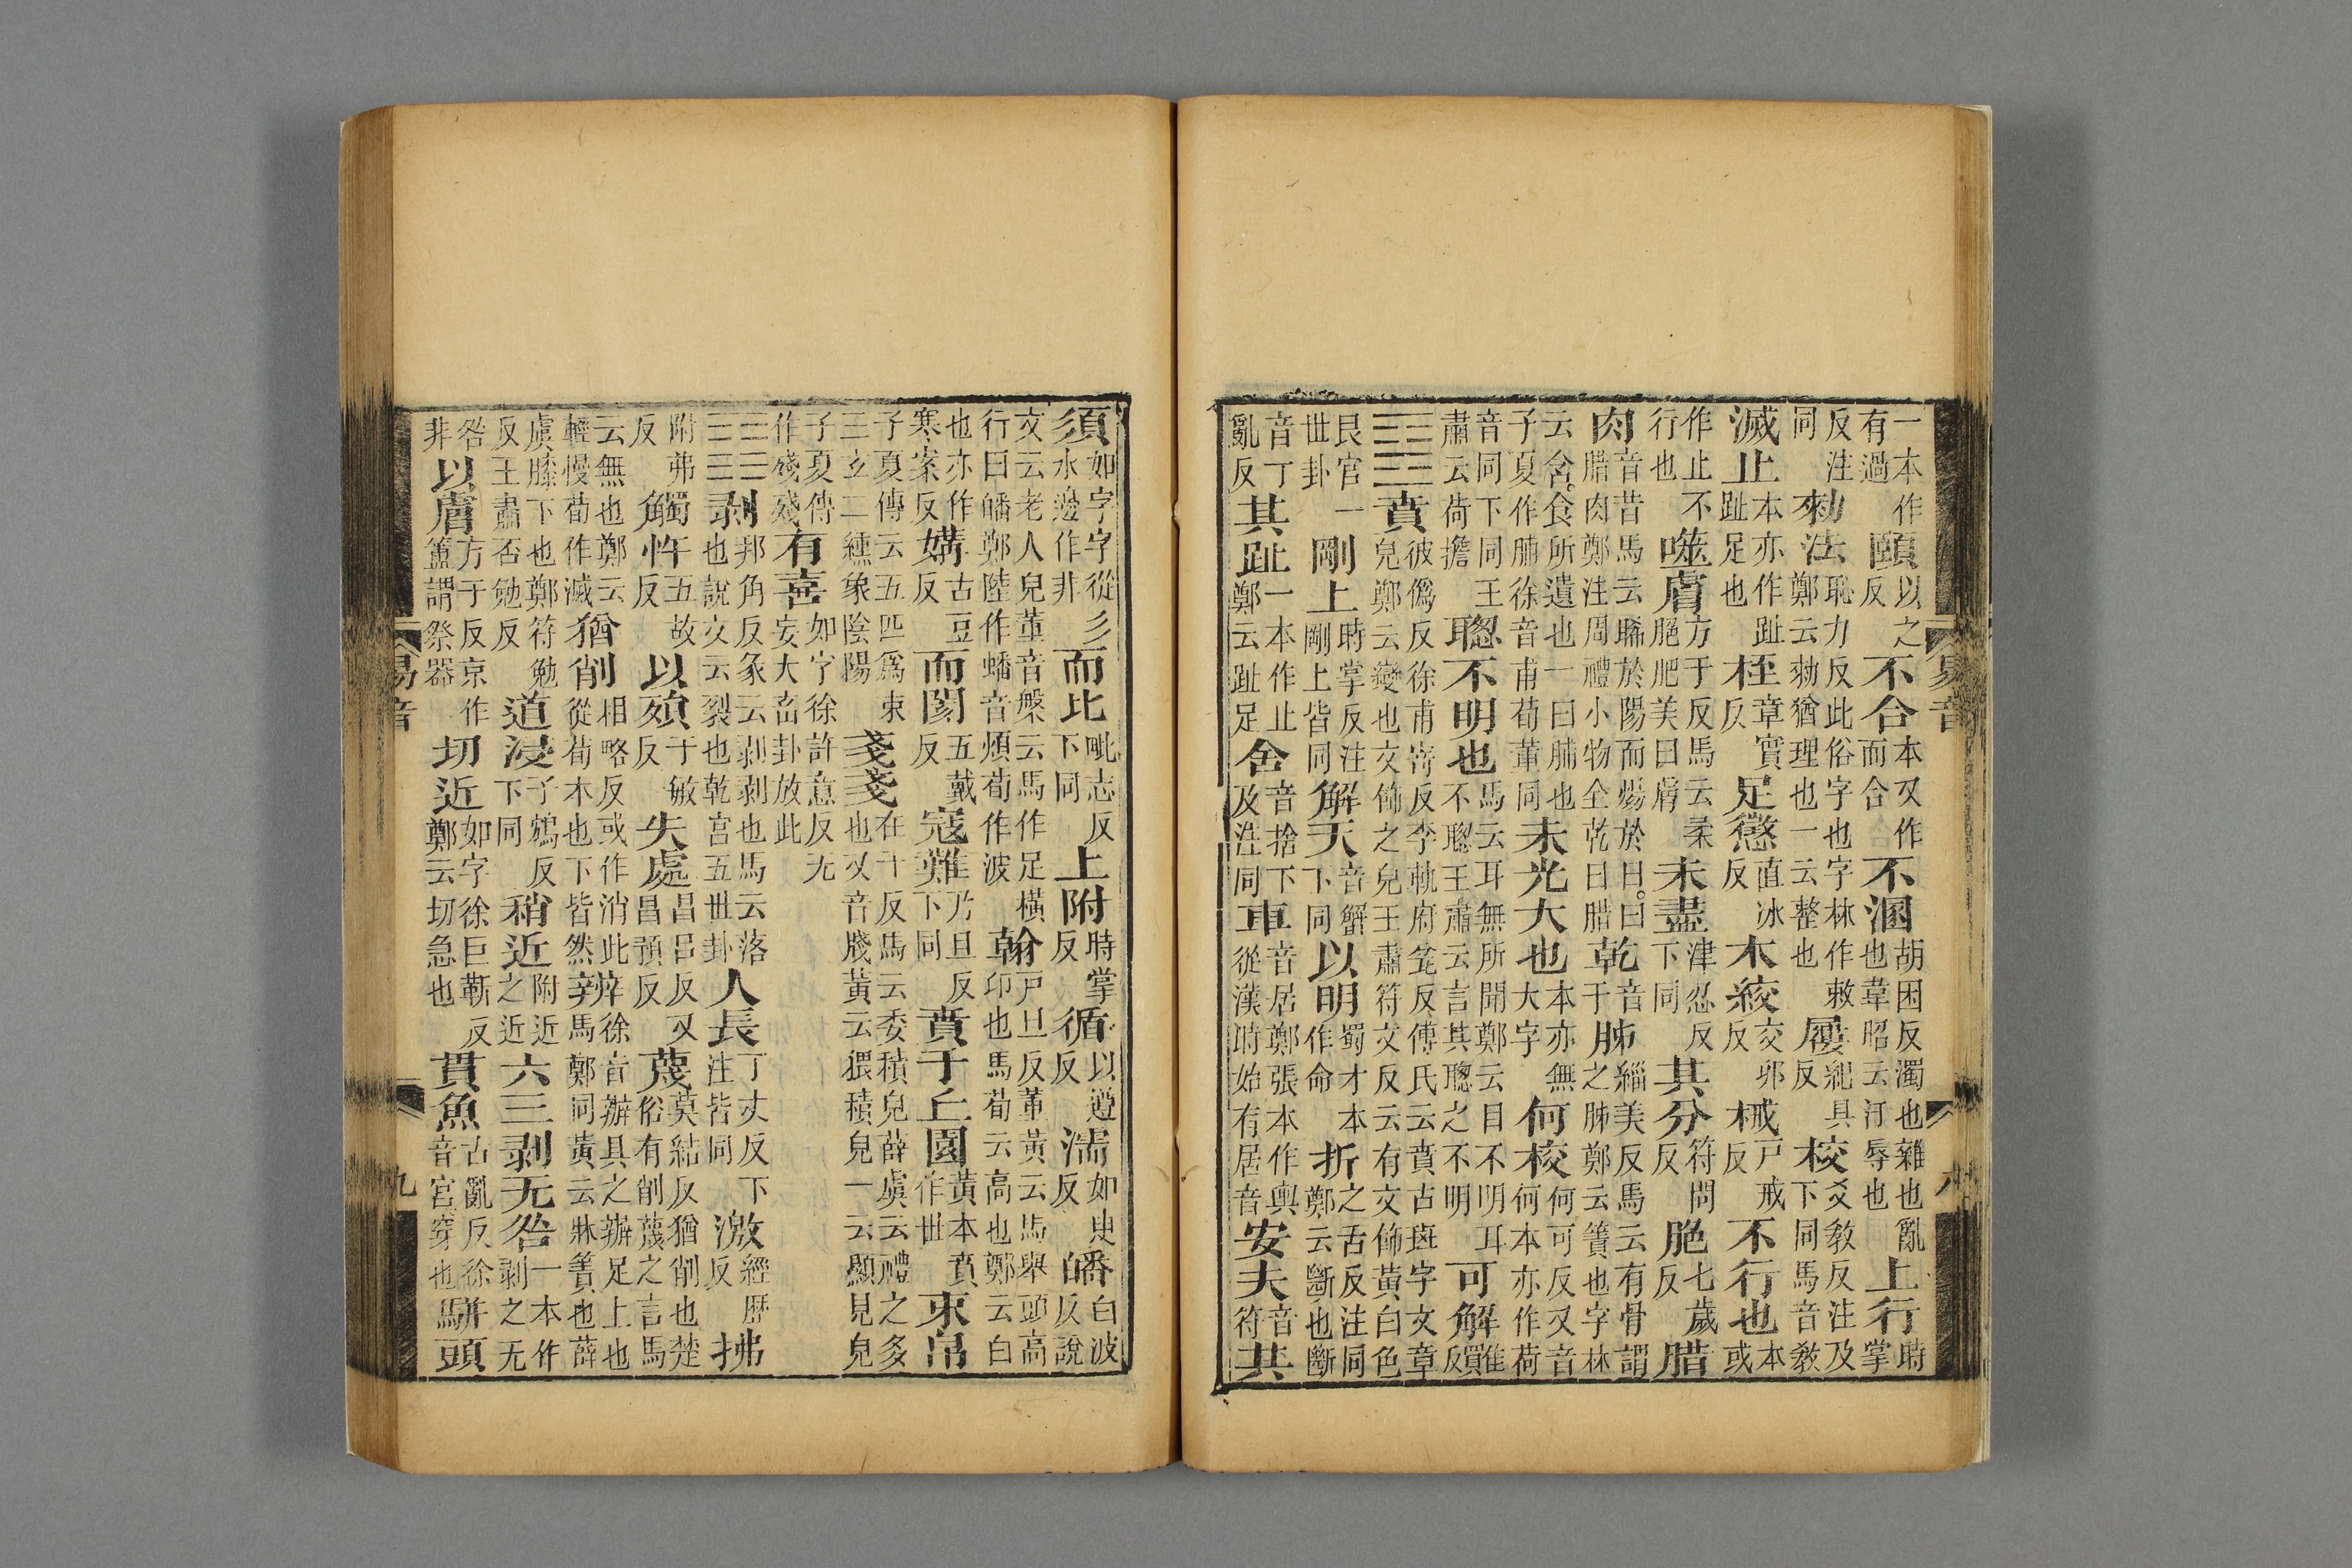 一本作有過頤以之反不合本又作而合不溷胡困反濁也雜也亂也韋昭云汙辱也上行時掌
反注同勑法恥力反此俗字也字林作敕鄭云勑猶理也一云整也屨紀具反校爻教反注及下同馬音教
滅止本亦作趾趾足也桎章實反足懲直冰反木絞交卯反械戶戒反不行也本或
作止不行也噬膚方于反馬云柔脃肥美曰膚未盡津忍反下同其分符問反脃七歲反腊
肉音昔馬云晞於陽而煬於日曰腊肉鄭注周禮小物全乾曰腊乾音干胏緇美反馬云有骨謂之胏鄭云簀也字林
云含食所遺也一曰脯也子夏作脯徐音甫荀董同未光大也本亦無大字何校何可反又音何本亦作荷
音同下同王肅云荷擔聦不明也馬云耳無所聞鄭云目不明耳不聦王肅云言其聦之不明可解佳買反
䷕賁彼僞反徐甫寄反李軌府瓫反傅氏云賁古斑字文章皃鄭云變也文飾之皃王肅符文反云有文飾黃白色
艮宮一世卦剛上時掌反注剛上皆同解天音蟹下同以明蜀才本作命折之舌反注同鄭云斷也斷
音丁亂反其趾一本作止鄭云趾足舍音捨下及注同車音居鄭張本作輿從漢時始有居音安夫音符其
須如字字從彡水邊作非而比毗志反下同上附時掌反循以遵反濡如臾反皤白波反說
文云老人皃董音槃云馬作足橫行曰皤鄭陸作蟠音煩荀作波翰戶旦反董黃云馬舉頭高卬也馬荀云高也鄭云白
也亦作寒案反媾古豆反而閡五戴反寇難乃旦反下同賁于丘園黃本賁作世束帛
子夏傳云五匹爲束三玄二纁象陰陽戔戔在千反馬云委積皃薛虞云禮之多也又音牋黃云猥積皃一云顯見皃
子夏傳作殘殘有喜如字徐許意反无妄大畜卦放此
䷖剥邦角反彖云剥剥也馬云落也說文云裂也乾宮五世卦人長丁丈反下注皆同激經歷反拂
附弗反觸忤五故反以殞于敏反失處昌呂反又昌預反蔑莫結反猶削也楚俗有削蔑之言馬
云無也鄭云輕慢荀作滅猶削相略反或作消此從荀本也下皆然辨徐音辦具之辦足上也馬鄭同黃云牀簀也薛
虞膝下也鄭符勉反王肅否勉反道浸子鴆反下同稍近附近之近六三剥无咎一本作剥之无
咎非以膚方于反京作簠謂祭器切近如字徐巨靳反鄭云切急也貫魚古亂反徐音官穿也駢頭
易音
九